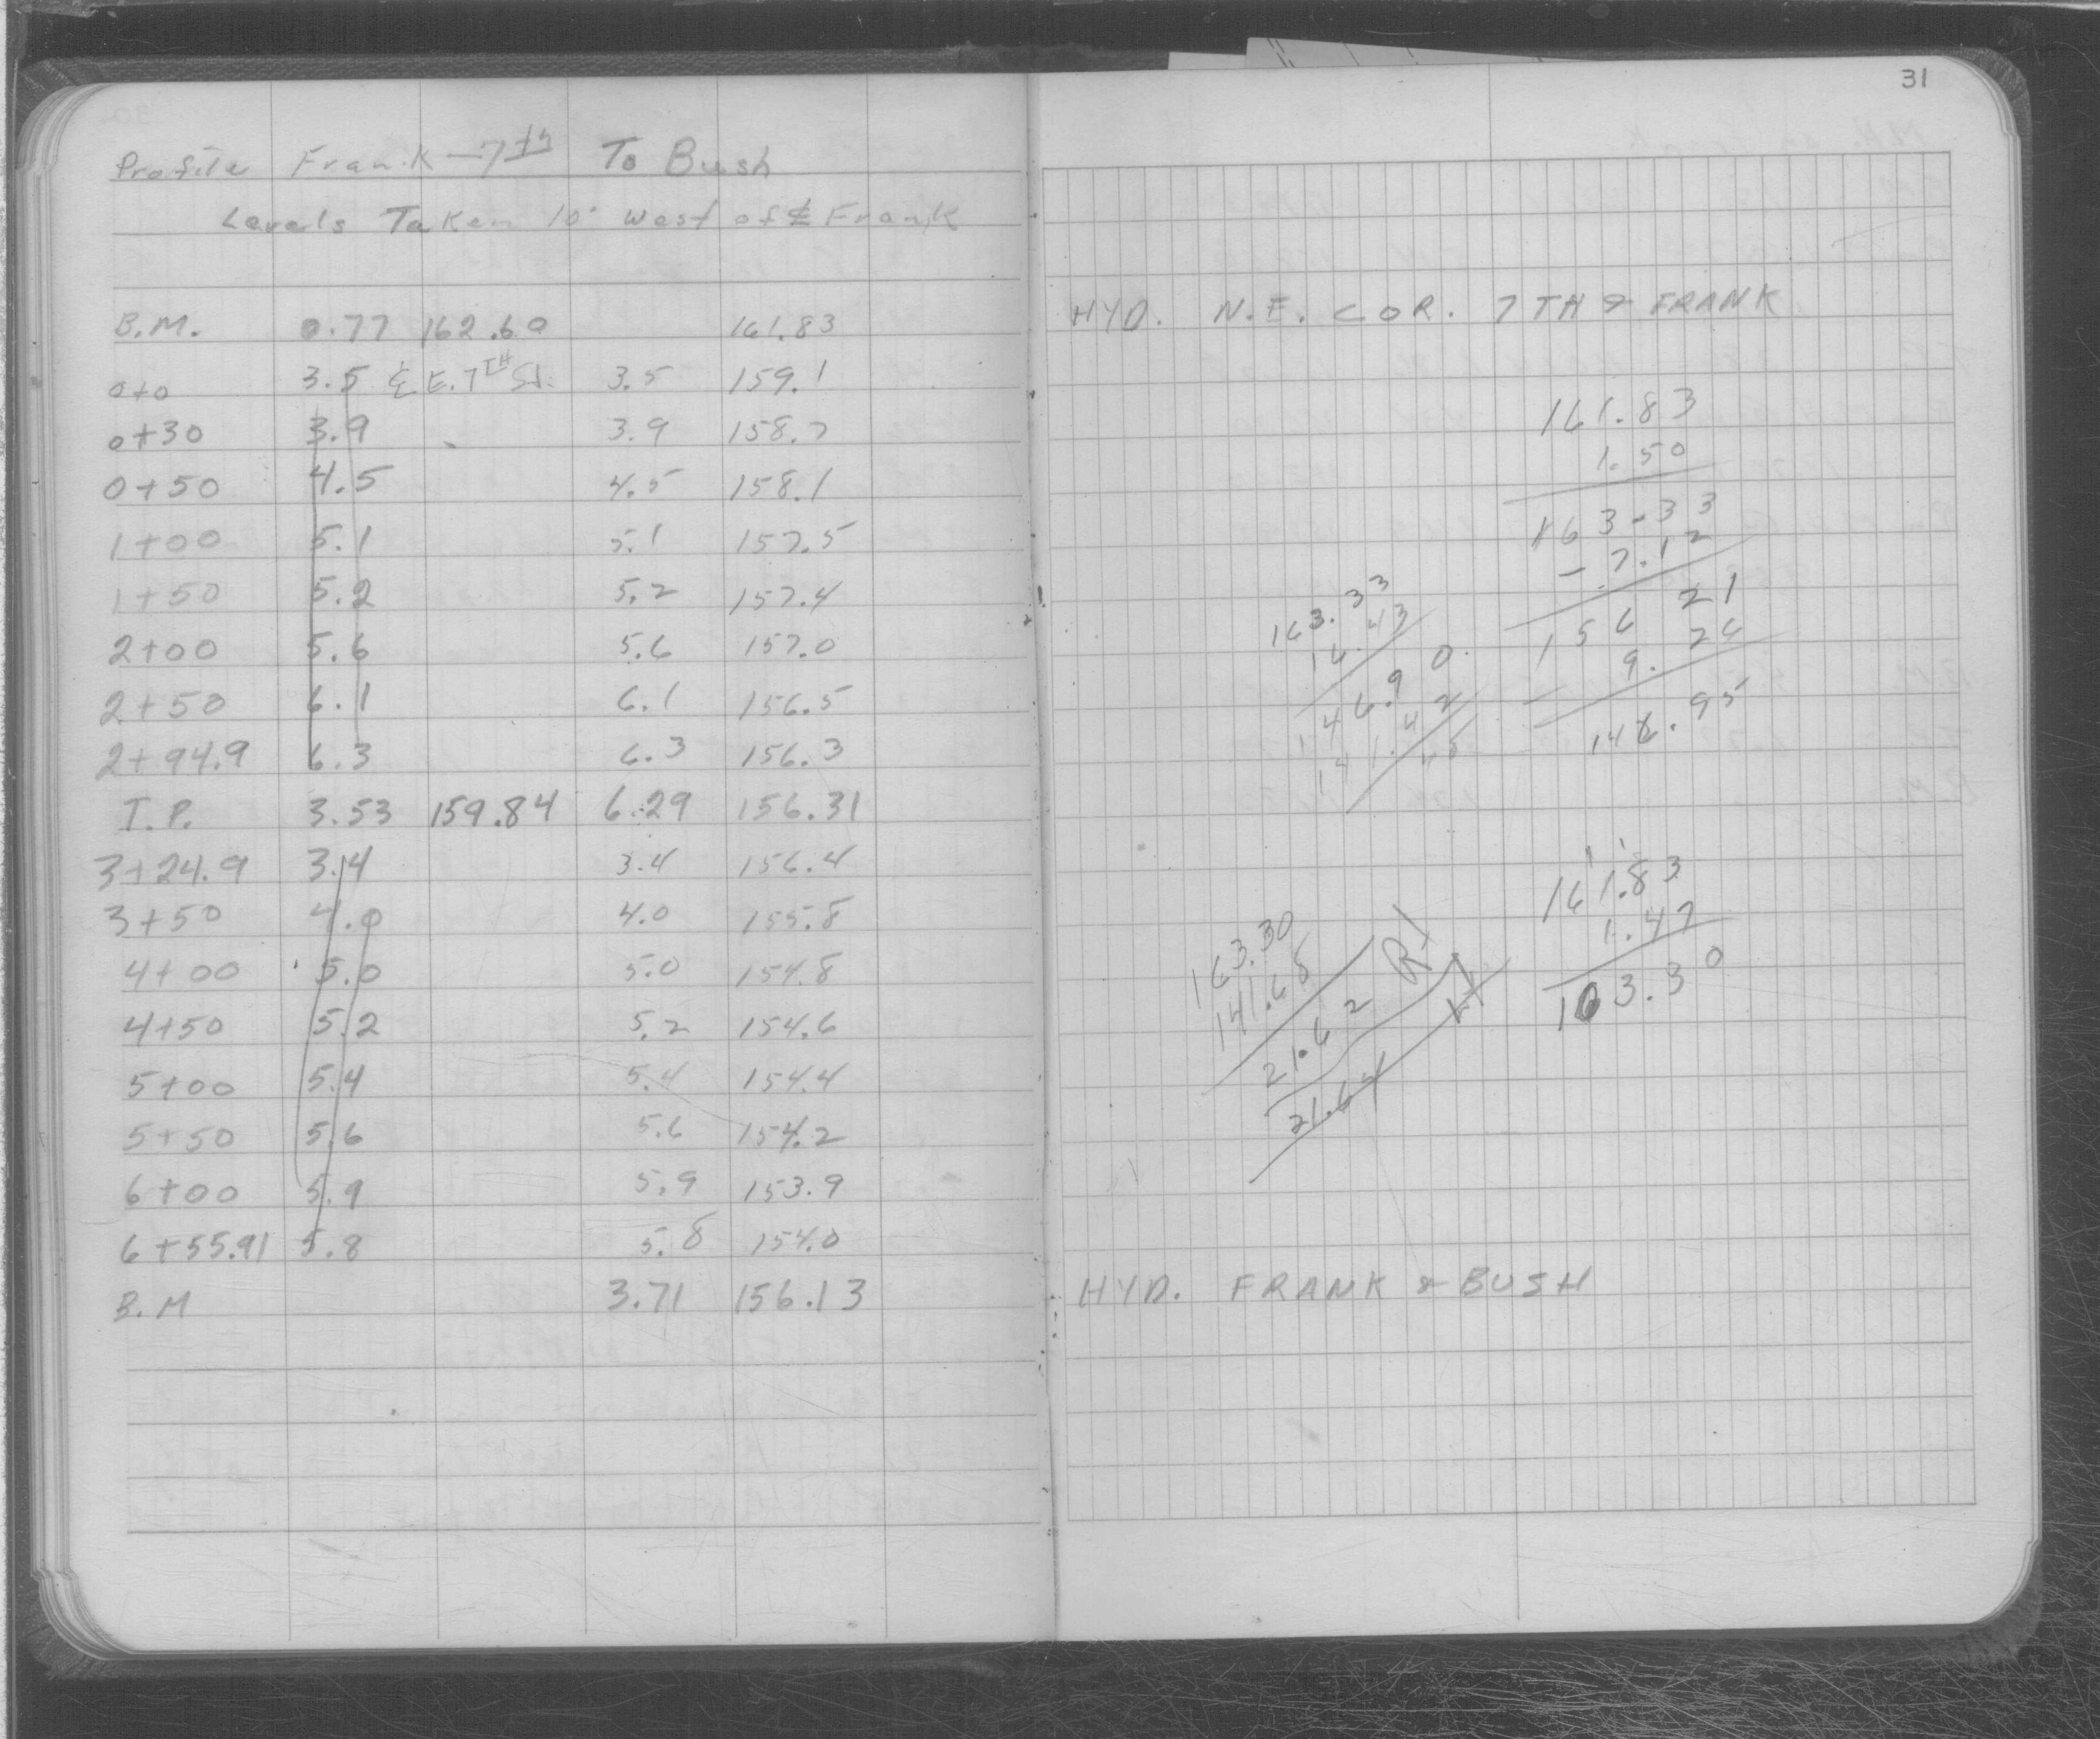 Profile Frank - 7th To Bush
Levels Taken 10' West of ℄ Frank
B.M. 0.77 162.60 161.83
0+0 3.5 ℄ E. 7TH St. 3.5 159.1
0+30 3.9 3.9 158.7
0+50 4.5 4.5 158.1
1+00 5.1 5.1 157.5
1+50 5.2 5.2 157.4
2+00 5.6 5.6 157.0
2+50 6.1 6.1 156.5
2+94.9 6.3 6.3 156.3
T.P. 3.53 159.84 6.29 156.31
3+24.9 3.4 3.4 156.4
3+50 4.0 4.0 155.8
4+00 5.0 5.0 154.8
4+50 5.2 5.2 154.6
5+00 5.4 5.4 154.4
5+50 5.6 5.6 154.2
6+00 5.9 5.9 153.9
6+55.91 5.8 5.8 154.0
B.M 3.71 156.13
31
HYD. N.E. COR. 7TH & FRANK
161.83
1.50
163-33
-7.12
156 21
- 9.26
146.95
163.33
16.43
146.90
161.83
1.47
163.30
163.30
141.68
21.62
21.64
HYD. FRANK & BUSH